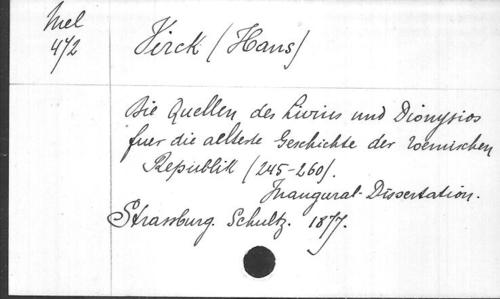 Mel
472
Virck (Hans)
Die Quellen des Livius und Dionysios
fuer die aelteste Geschichte der roemischen
Republik (245-260).
Inaugural-Dissertation.
Strassburg. Schultz. 1877.